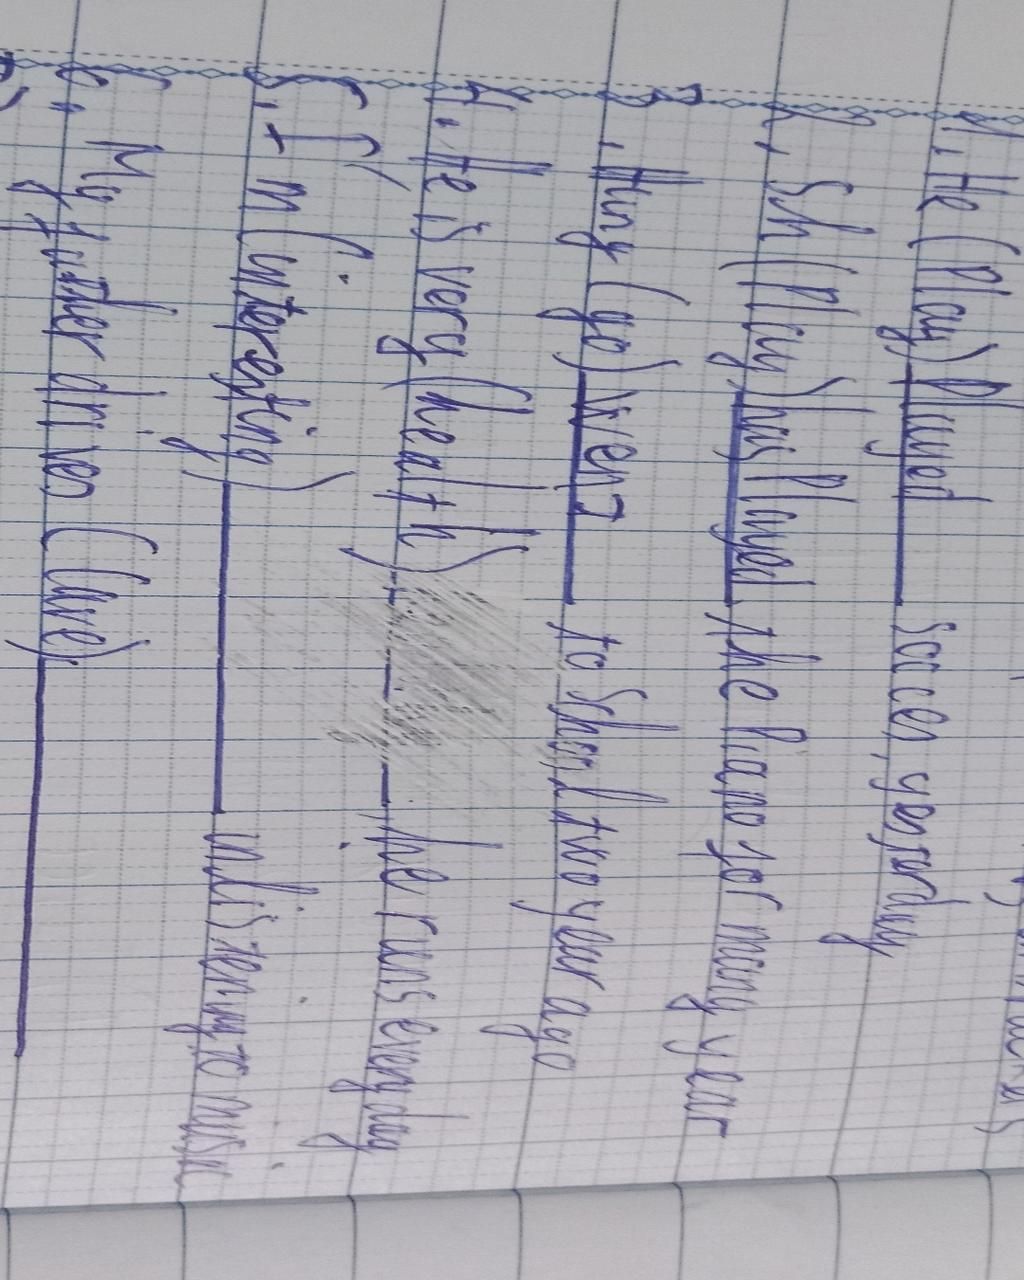 1. He (Play) Played soccer yesarday
2. Sh (Play) has Played the Piano for many year
3. they (go) went to School two year ago
4. He is very (healTh) he runs every day
5. I'm (interesting) in listening to music
6. My father drives (care)